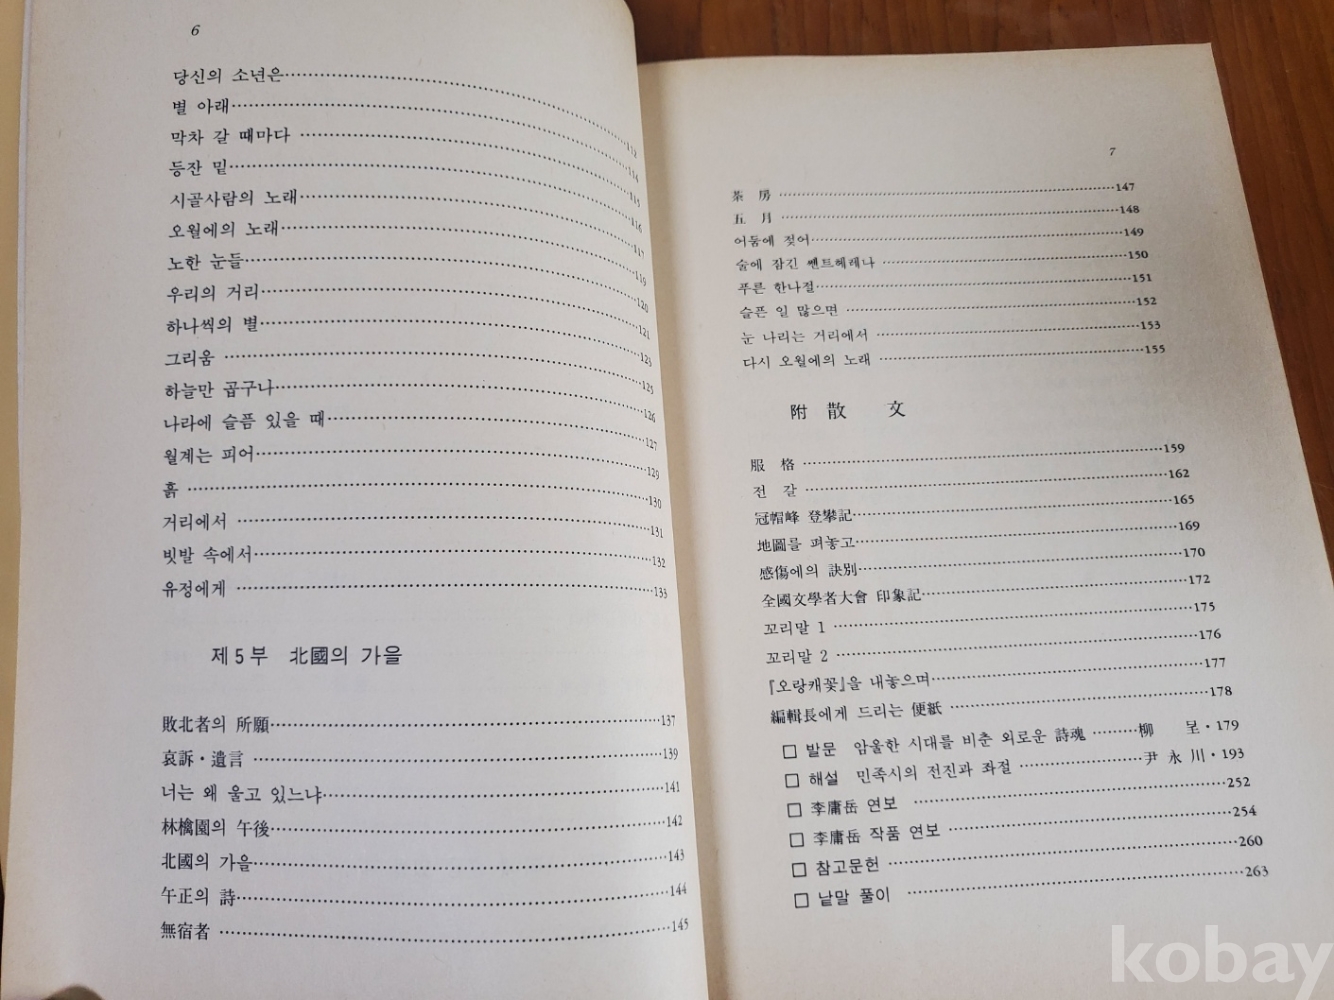 6
당신의 소년은……112
별 아래……114
막차 갈 때마다……115
등잔 밑……116
시골사람의 노래……117
오월에의 노래……119
노한 눈들……120
우리의 거리……121
하나씩의 별……123
그리움……125
하늘만 곱구나……126
나라에 슬픔 있을 때……127
월계는 피어……129
흙……130
거리에서……131
빗발 속에서……132
유정에게……133
제5부 北國의 가을
敗北者의 所願……137
哀訴·遺言……139
너는 왜 울고 있느냐……141
林檎園의 午後……142
北國의 가을……143
午正의 詩……144
無宿者……145
7
茶 房……147
五 月……148
어둠에 젖어……149
술에 잠긴 쎈트헤레나……150
푸른 한나절……151
슬픈 일 많으면……152
눈 나리는 거리에서……153
다시 오월에의 노래……155
附 散 文
服 格……159
전 갈……162
冠帽峰 登攀記……165
地圖를 펴놓고……169
感傷에의 訣別……170
全國文學者大會 印象記……172
꼬리말 1……175
꼬리말 2……176
『오랑캐꽃』을 내놓으며……177
編輯長에게 드리는 便紙……178
□ 발문 암울한 시대를 비춘 외로운 詩魂……柳 呈·179
□ 해설 민족시의 전진과 좌절……尹永川·193
□ 李庸岳 연보……252
□ 李庸岳 작품 연보……254
□ 참고문헌……260
□ 낱말 풀이……263
kobay